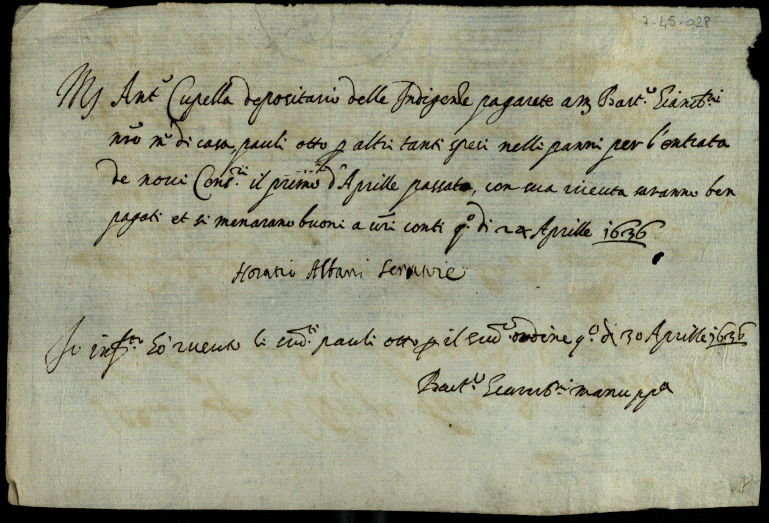 7-45-028
Mr Ant.o Cupella depositario delle Indigenze pagarete a m Bart.o Giamb.ni
nro m.o di casa pauli otto p altri tanti spesi nelli panni per l'entrata
de novi Cons.ri il primo d'Aprille passato, con sua riceuta saranno ben
pagati et si menarano buoni a vri conti q.o di 24 Aprille 1636
Horatio Albani
Io inf.to hò riceuto li sud.ti pauli otto p il sud.o ordine q.o dì 30 Aprille 1636
Bart.o Giamb.ni manu pp.a